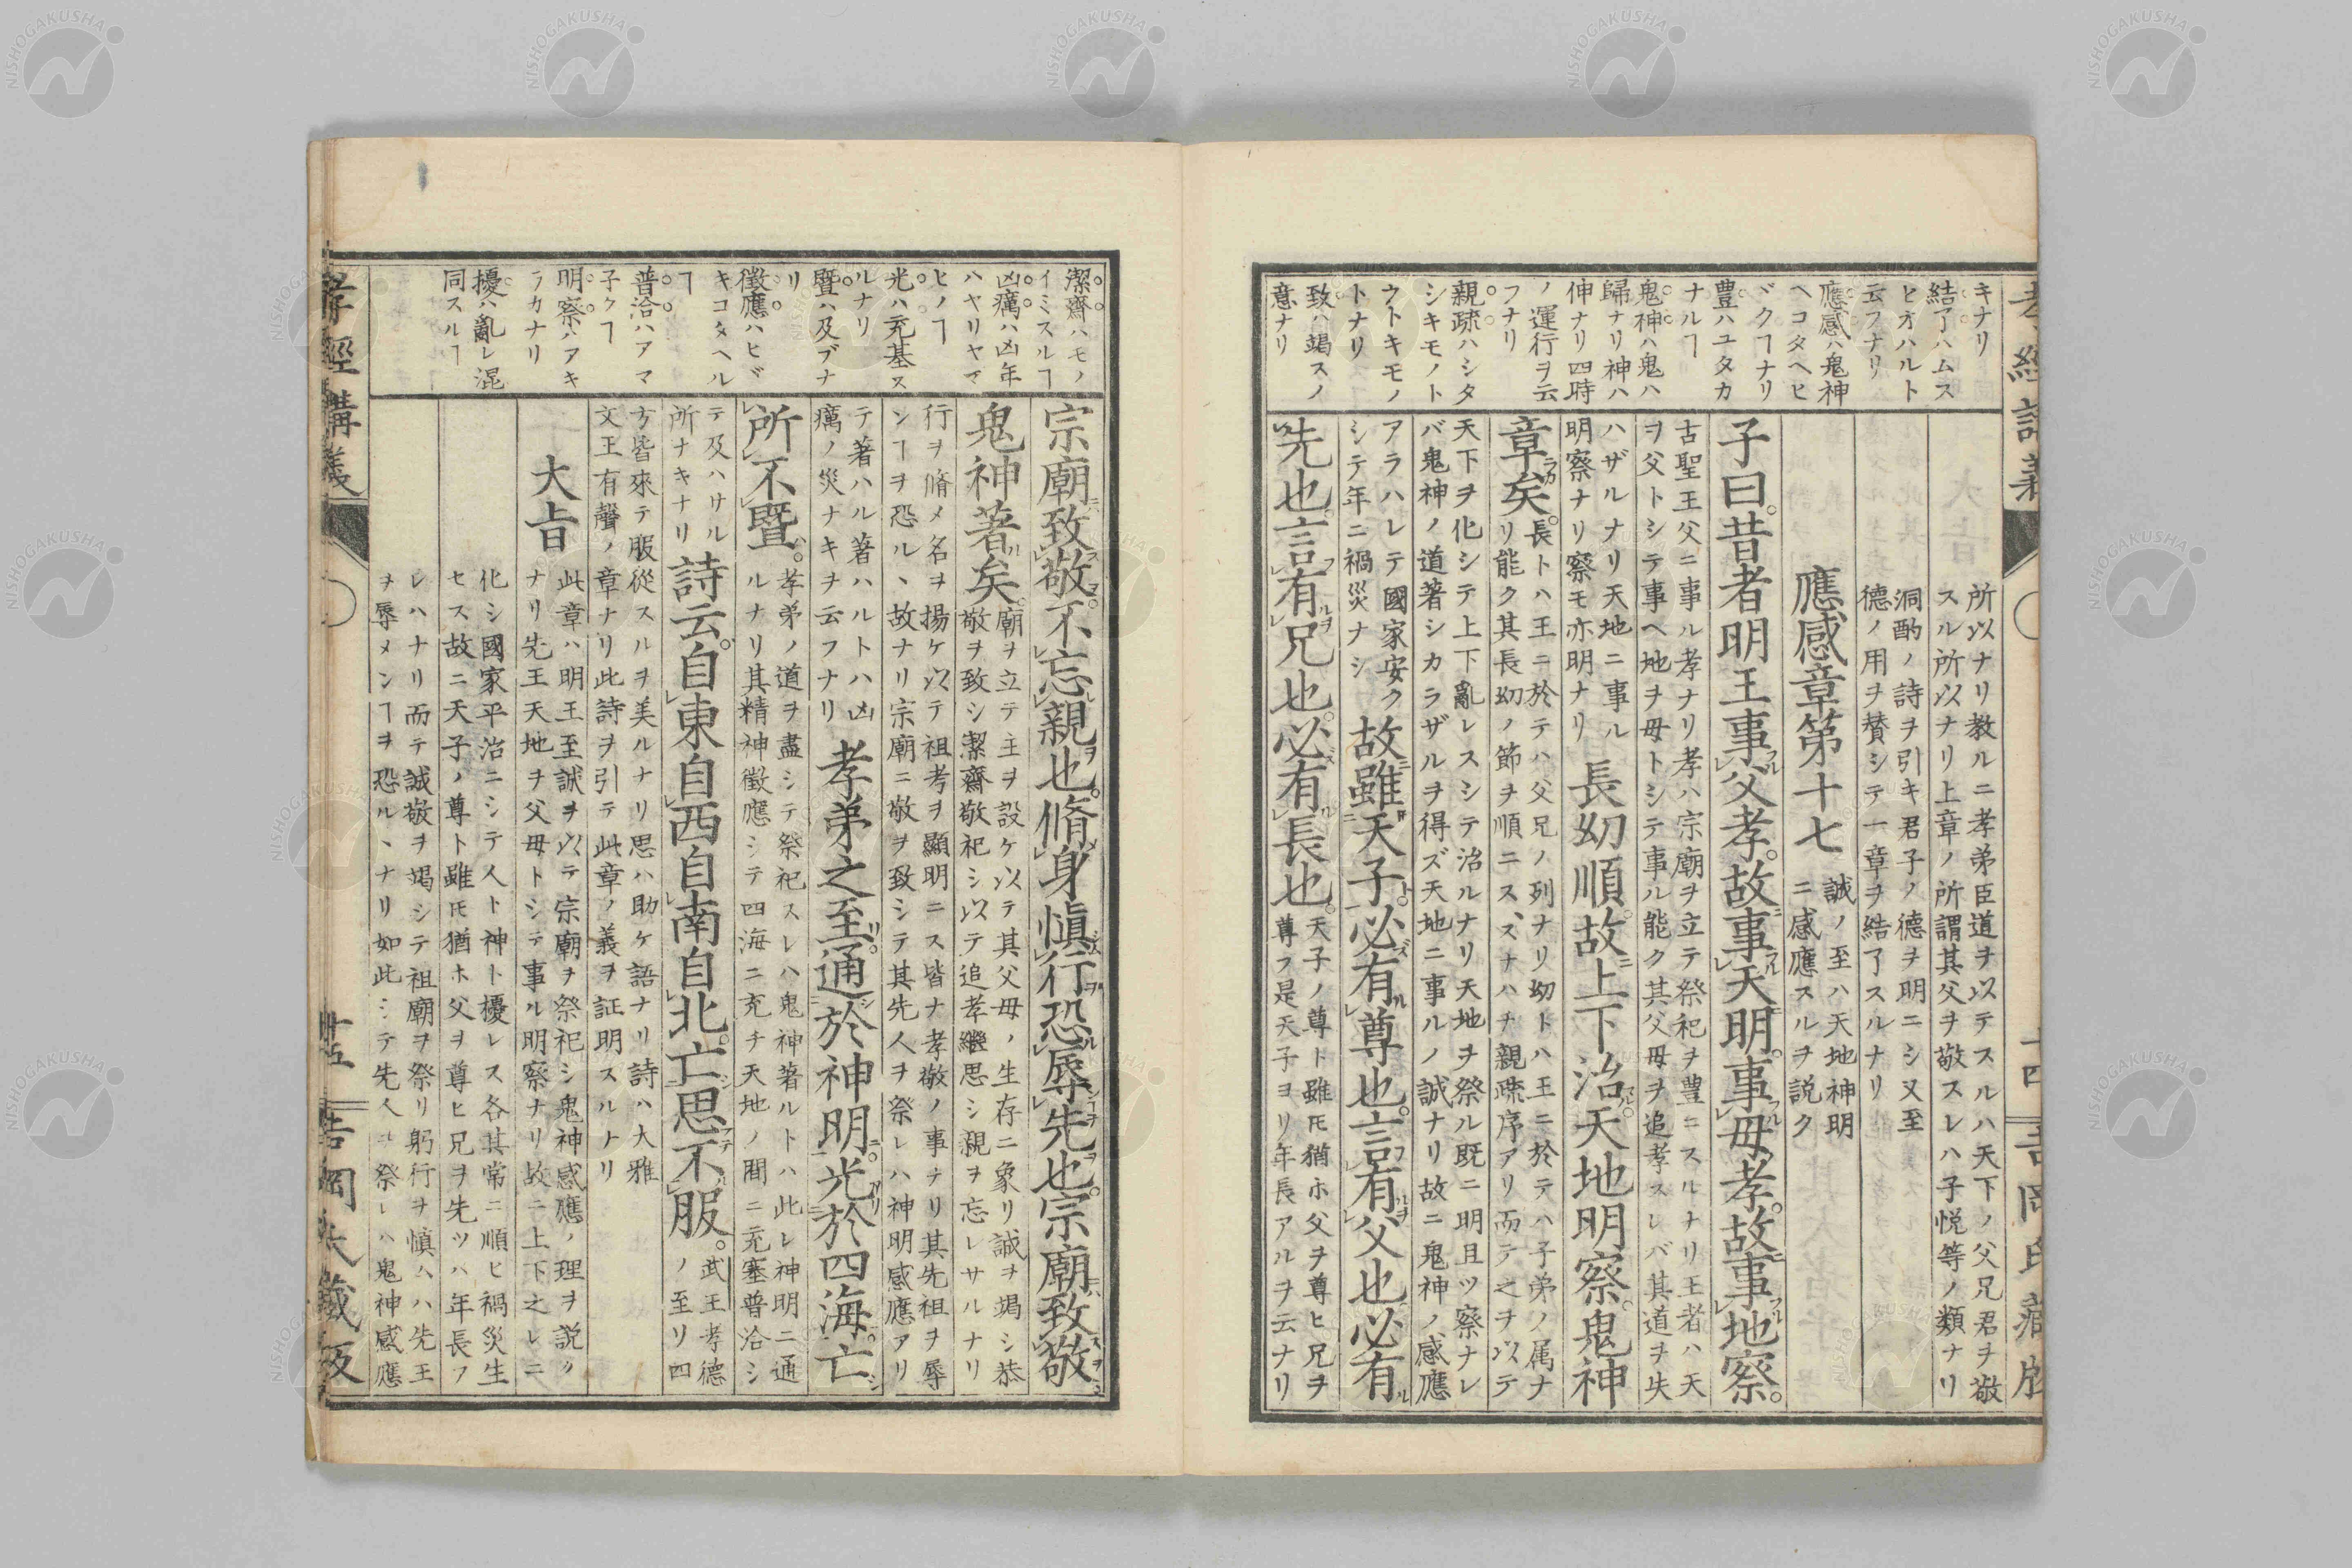 キナリ
結了ハムス
ヒオハルト
云フナリ
應感ハ鬼神
ヘコタヘヒ
ベクヿナリ
豊ハユタカ
ナルヿ
鬼神ハ鬼ハ
歸ナリ神ハ
伸ナリ四時
ノ運行ヲ云
フナリ
親疏ハシタ
シキモノト
ウトキモノ
トナリ
致ハ竭スノ
意ナリ
所以ナリ教ルニ孝弟臣道ヲ以テスルハ天下ノ父兄君ヲ敬
スル所以ナリ上章ノ所謂其父ヲ敬スレハ子悦等ノ類ナリ
洞酌ノ詩ヲ引キ君子ノ德ヲ明ニシ又至
德ノ用ヲ賛シテ一章ヲ結了スルナリ
應感章第十七
誠ノ至ハ天地神明
ニ感應スルヲ説ク
子曰昔者明王事父孝故事天明事母孝故事地察
古聖王父ニ事ル孝ナリ孝ハ宗廟ヲ立テ祭祀ヲ豊ニスルナリ王者ハ天
ヲ父トシテ事ヘ地ヲ母トシテ事ル能ク其父母ヲ追孝スレバ其道ヲ失
ハザルナリ天地ニ事ル
明察ナリ察モ亦明ナリ
長幼順故上下治天地明察鬼神
章矣
長トハ王ニ於テハ父兄ノ列ナリ幼トハ王ニ於テハ子弟ノ属ナ
リ能ク其長幼ノ節ヲ順ニスヽスナハチ親疎序アリ而テ之ヲ以テ
天下ヲ化シテ上下亂レスシテ治ルナリ天地ヲ祭ル既ニ明且ツ察ナレ
バ鬼神ノ道著シカラザルヲ得ズ天地ニ事ルノ誠ナリ故ニ鬼神ノ感應
アラハレテ國家安ク
シテ年ニ禍災ナシ
故雖天子必有尊也言有父也必有
先也言有兄也必有長也
天子ノ尊ト雖𪜈猶ホ父ヲ尊ヒ兄ヲ
尊フ是天子ヨリ年長アルヲ云ナリ
孝經講義
十四
吉岡氏藏版
潔齋ハモノ
イミスルヿ
凶癘ハ凶年
ハヤリヤマ
ヒノヿ
光ハ充基ス
ルナリ
曁ハ及ブナ
リ
徵應ハヒヾ
キコタヘル
ヿ
普洽ハアマ
子クヿ
明察ハアキ
ラカナリ
擾ハ亂レ混
同スルヿ
宗廟致敬不忘親也脩身愼行恐辱先也宗廟致敬
鬼神著矣
廟ヲ立テ主ヲ設ケ以テ其父母ノ生存ニ象リ誠ヲ竭シ恭
敬ヲ致シ潔齋敬祀シ以テ追孝繼思シ親ヲ忘レサルナリ
行ヲ脩メ名ヲ揚ケ以テ祖考ヲ顯明ニス皆ナ孝敬ノ事ナリ其先祖ヲ辱
シヿヲ恐ルヽ故ナリ宗廟ニ敬ヲ致シテ其先人ヲ祭レハ神明感應アリ
テ著ハル著ハルトハ凶
癘ノ災ナキヲ云フナリ
孝弟之至通於神明光於四海亡
所不曁
孝弟ノ道ヲ盡シテ祭祀スレハ鬼神著ルトハ此レ神明ニ通
ルナリ其精神徵應シテ四海ニ充チ天地ノ間ニ充塞普洽シ
テ及ハサル
所ナキナリ
詩云自東自西自南自北亡思不服
武王孝德
ノ至リ四
方皆來テ服從スルヲ美ルナリ思ハ助ケ語ナリ詩ハ大雅
文王有聲ノ章ナリ此詩ヲ引テ此章ノ義ヲ証明スルナリ
大旨
此章ハ明王至誠ヲ以テ宗廟ヲ祭祀シ鬼神感應ノ理ヲ説ク
ナリ先王天地ヲ父母トシテ事ル明察ナリ故ニ上下之レニ
化シ國家平治ニシテ人ト神ト擾レス各其常ニ順ヒ禍災生
セス故ニ天子ノ尊ト雖𪜈猶ホ父ヲ尊ヒ兄ヲ先ツハ年長フ
レハナリ而テ誠敬ヲ竭シテ祖廟ヲ祭リ躬行ヲ愼ムハ先王
ヲ辱メンヿヲ恐ルヽナリ如此シテ先人ヲ祭レハ鬼神感應
孝經講義
十五
吉岡氏藏版